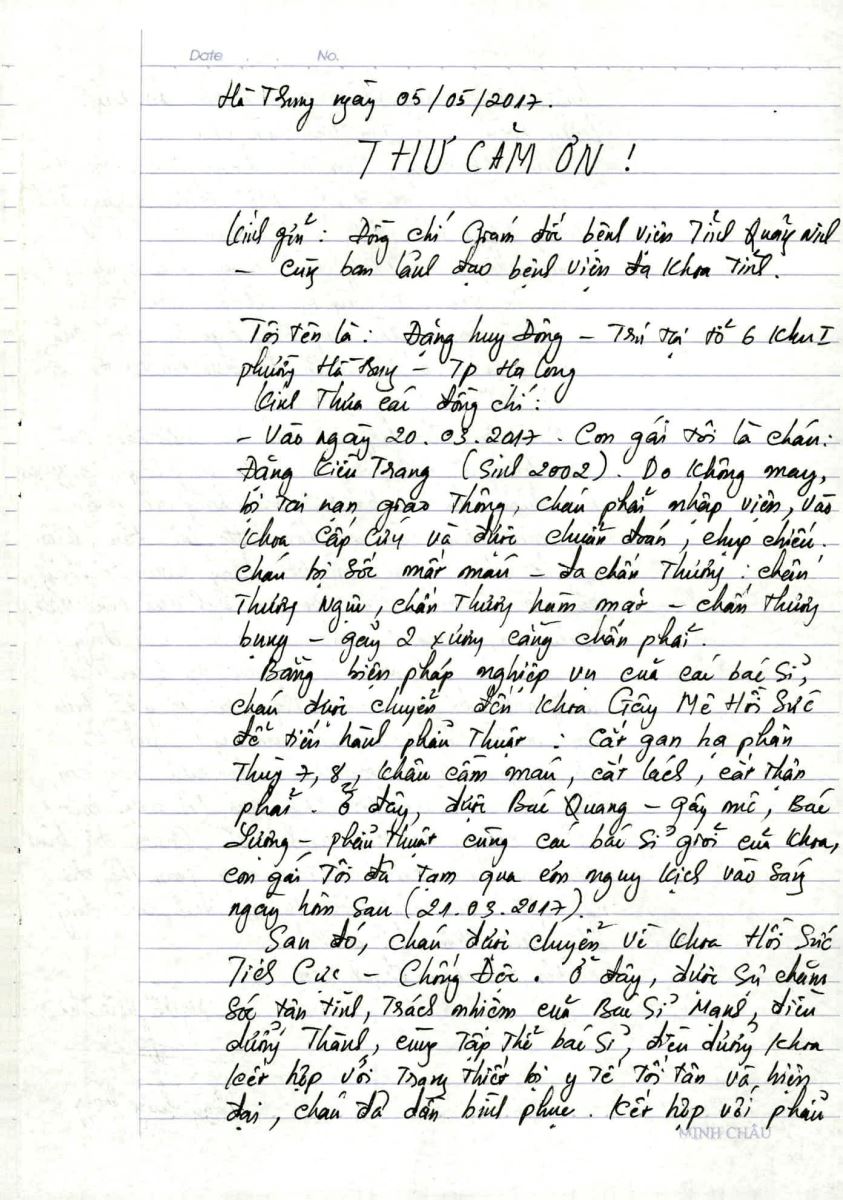 Date No.
Hà Trung ngày 05/05/2017.
THƯ CẢM ƠN !
Kính gửi : Đồng chí Giám đốc bệnh viện Tỉnh Quảng Ninh
– Cùng ban lãnh đạo bệnh viện đa khoa Tỉnh.
Tôi tên là : Đặng huy Đông – Trú tại tổ 6 khu I
phường Hà Trung – Tp Hạ Long
Kính Thưa các đồng chí :
– Vào ngày 20.03.2017. Con gái tôi là cháu :
Đặng Kiều Trang (Sinh 2002). Do không may,
bị tai nạn giao Thông, cháu phải nhập viện, vào
khoa Cấp Cứu và được chuẩn đoán, chụp chiếu.
cháu bị Sốc mất máu – đa chấn Thương : chấn
Thương Ngực, chấn Thương hàm mặt – chấn Thương
bụng – gẫy 2 xương cẳng chân phải.
Bằng biện pháp nghiệp vụ của các bác Sĩ,
cháu được chuyển đến khoa Gây Mê Hồi Sức
để tiến hành phẫu Thuật : Cắt gan hạ phân
Thùy 7, 8, khâu cầm máu, cắt lách, cắt thận
phải. Ở đây, được Bác Quang – gây mê, Bác
Lượng – phẫu thuật cùng các bác Sĩ giỏi của khoa,
con gái Tôi đã tạm qua cơn nguy kịch vào Sáng
ngày hôm Sau (21.03.2017).
Sau đó, cháu được chuyển về khoa Hồi Sức
Tích Cực – Chống Độc. Ở đây, được Sự chăm
Sóc tận tình, trách nhiệm của Bác Sĩ Mạnh, điều
dưỡng Thành, cùng Tập Thể bác Sĩ, điều dưỡng khoa
kết hợp với Trang Thiết bị y Tế Tối tân và hiện
đại, cháu đã dần bình phục. Kết hợp với phẫu
MINH CHÂU